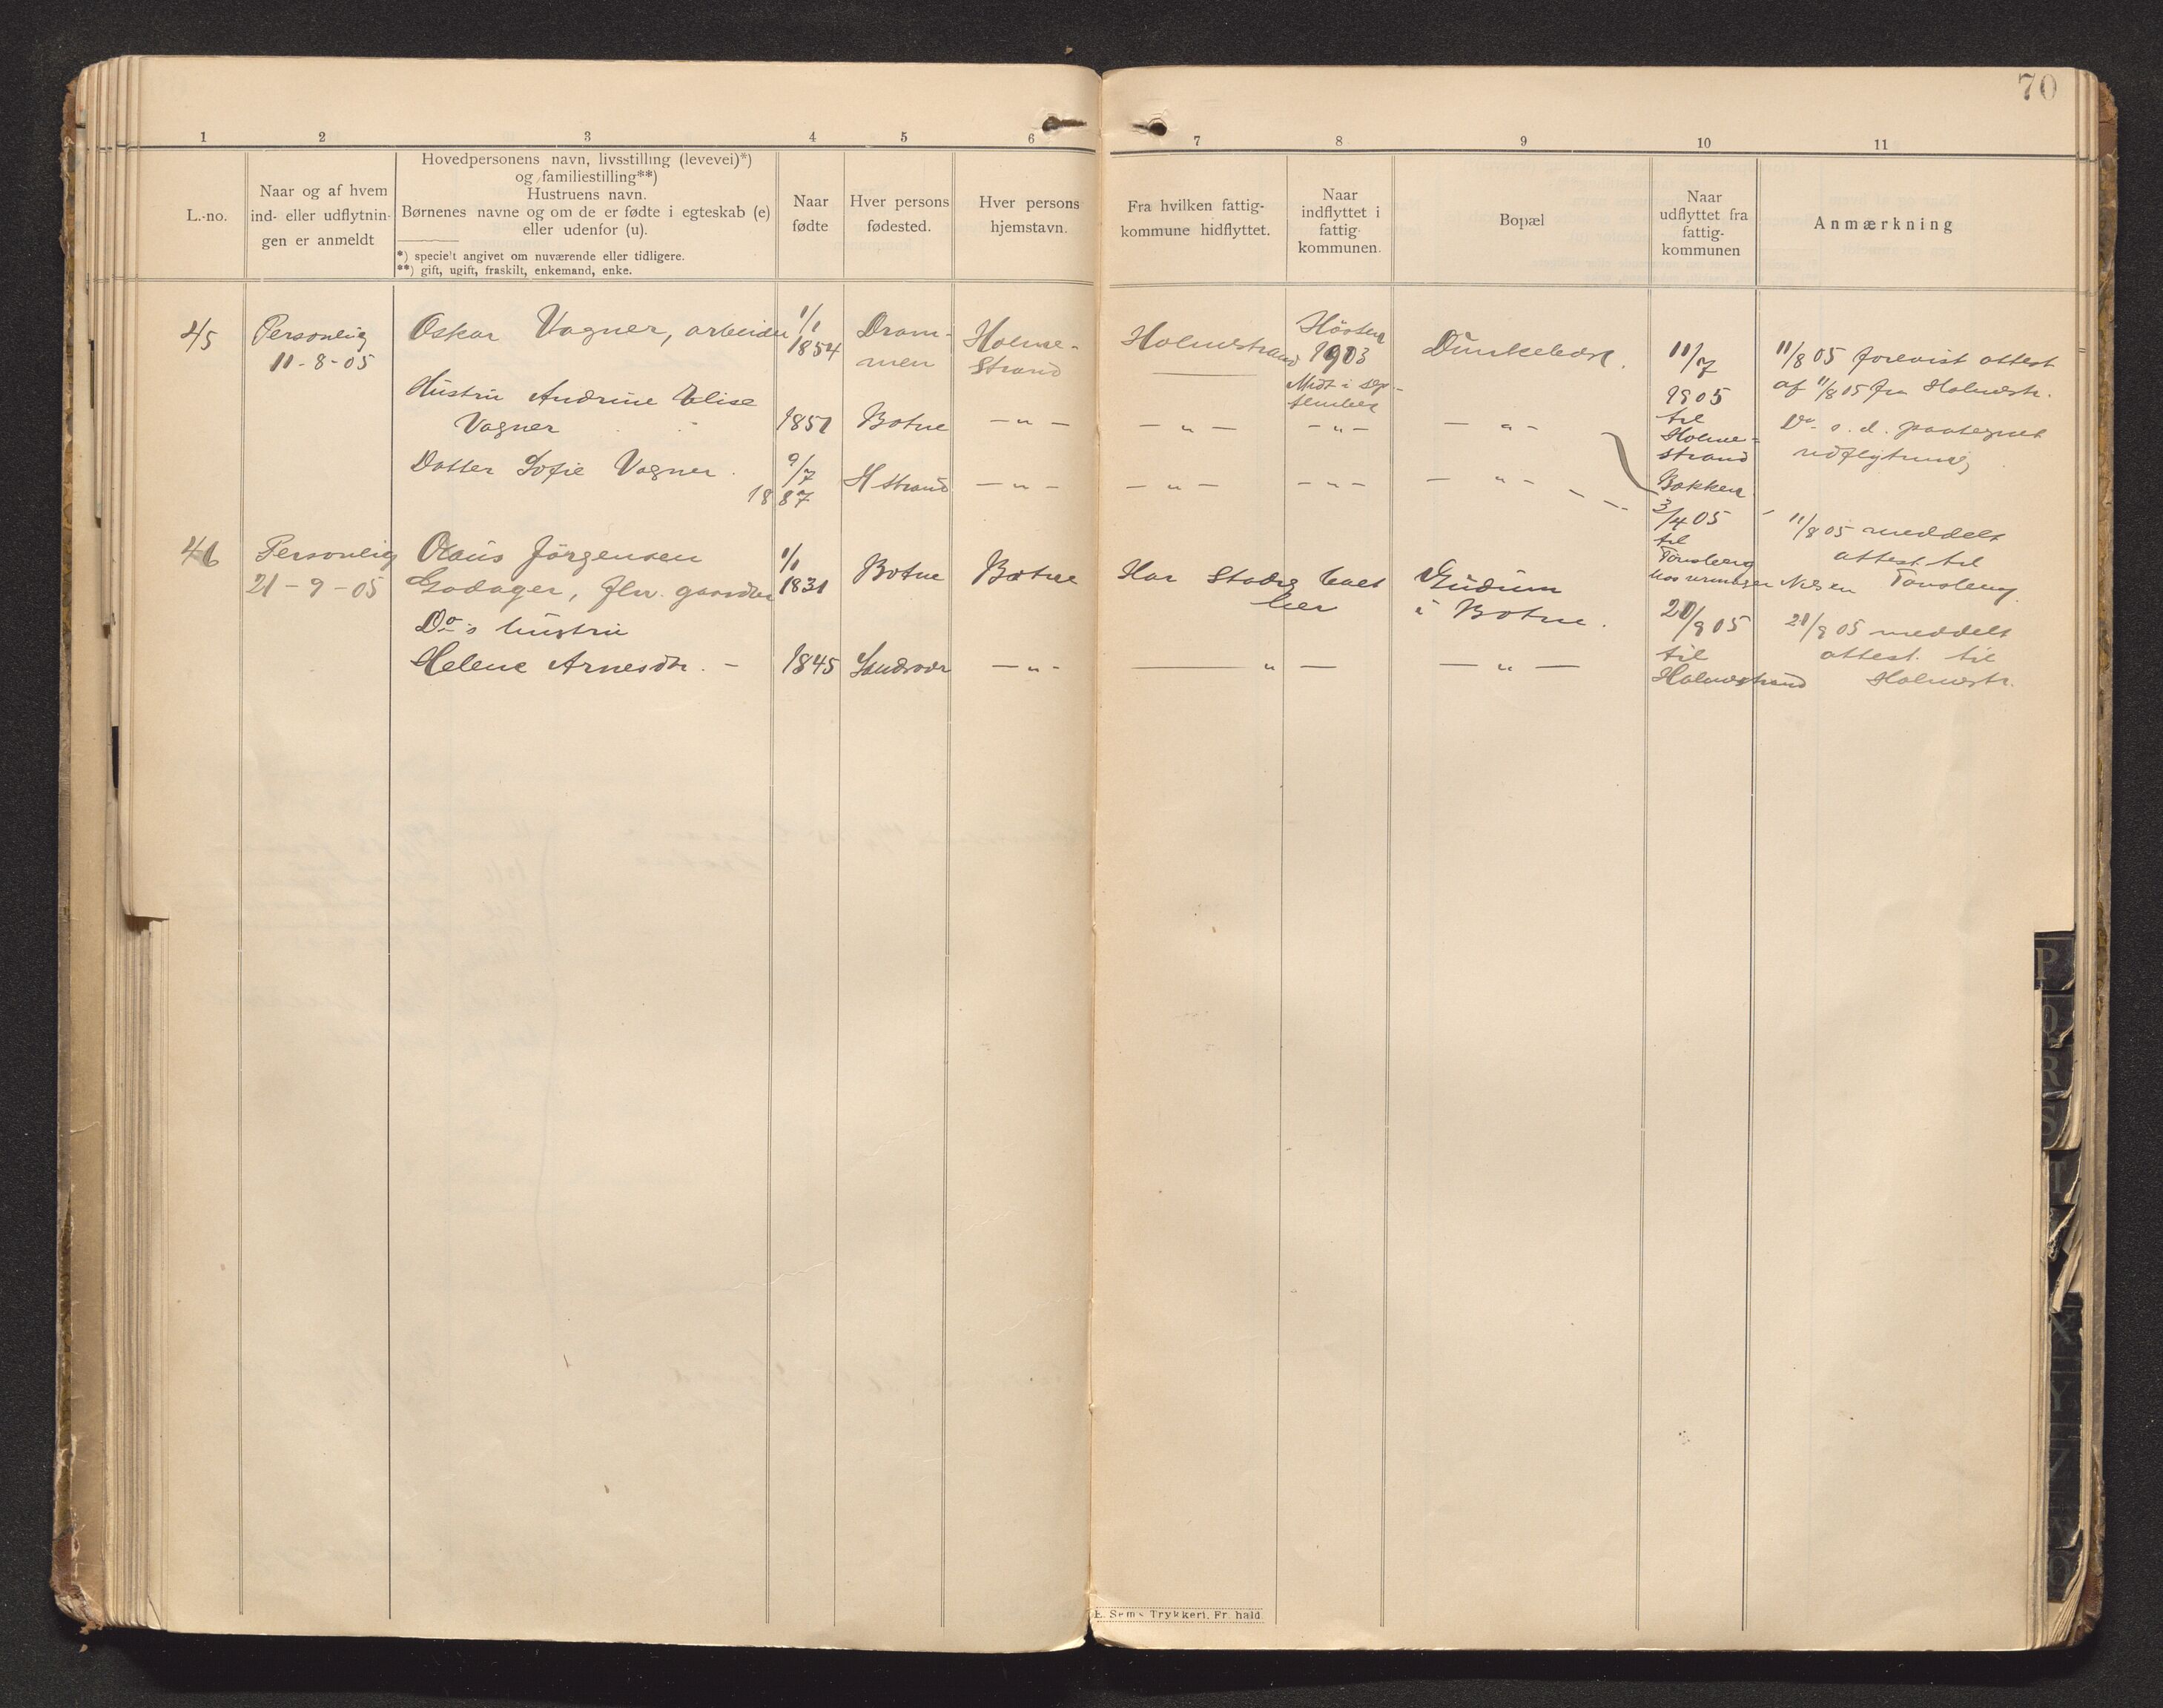 70
1 2 3 4 5 6 7 8 9 10 11
L.-no.
Naar og af hvem
ind- eller udflytnin-
gen er anmeldt
Hovedpersonens navn, livsstilling (levevei)*)
og familiestilling**)
Hustruens navn.
Børnenes navne og om de er fødte i egteskab (e)
eller udenfor (u).
*) specielt angivet om nuværende eller tidligere.
**) gift, ugift, fraskilt, enkemand, enke.
Naar
fødte
Hver persons
fødested.
Hver persons
hjemstavn.
Fra hvilken fattig-
kommune hidflyttet.
Naar
indflyttet i
fattig
kommunen.
Bopæl
Naar
udflyttet fra
fattig-
kommunen
Anmærkning
45
Personlig
11-8-05
Oskar Vagner, arbeider
1/1
1854
Dram-
men
Holme-
strand
Holmestrand
Hösten
1903
Midt i sep-
tember
11/7
1905
til
Holme-
strand
11/8 05 forevist attest
af 11/8 05 fra Holmestr.
Do s. d. paategnet
udflytning
Hustru Andrine Elise
Vagner
1851
Botne
— „ —
— „ —
— „ —
— „ —
Datter Sofie Vagner.
9/7
1887
H strand
— „ —
— „ —
— „ —
— „ —
Bakken
3/4 05
til
Tönsberg
hos urmager Nilsen
11/8 05 meddelt
attest til
Tönsberg.
46
Personlig
21-9-05
Olaus Jörgensen
Godager, fhv. gaardbr
1/1
1831
Botne
Botne
Har stadig boet
her
Gudum
i Botne.
21/9 05
til
Holmestrand
21/9 05 meddelt
attest til
Holmestr.
Do's hustru
Helene Arnesdtr. -
1845
Sandsvær
— „ -
— „ —
— „ —
E. Sem's Trykkeri, Fr.hald.
P
Q
R
S
T
X
Y
Z
Ø